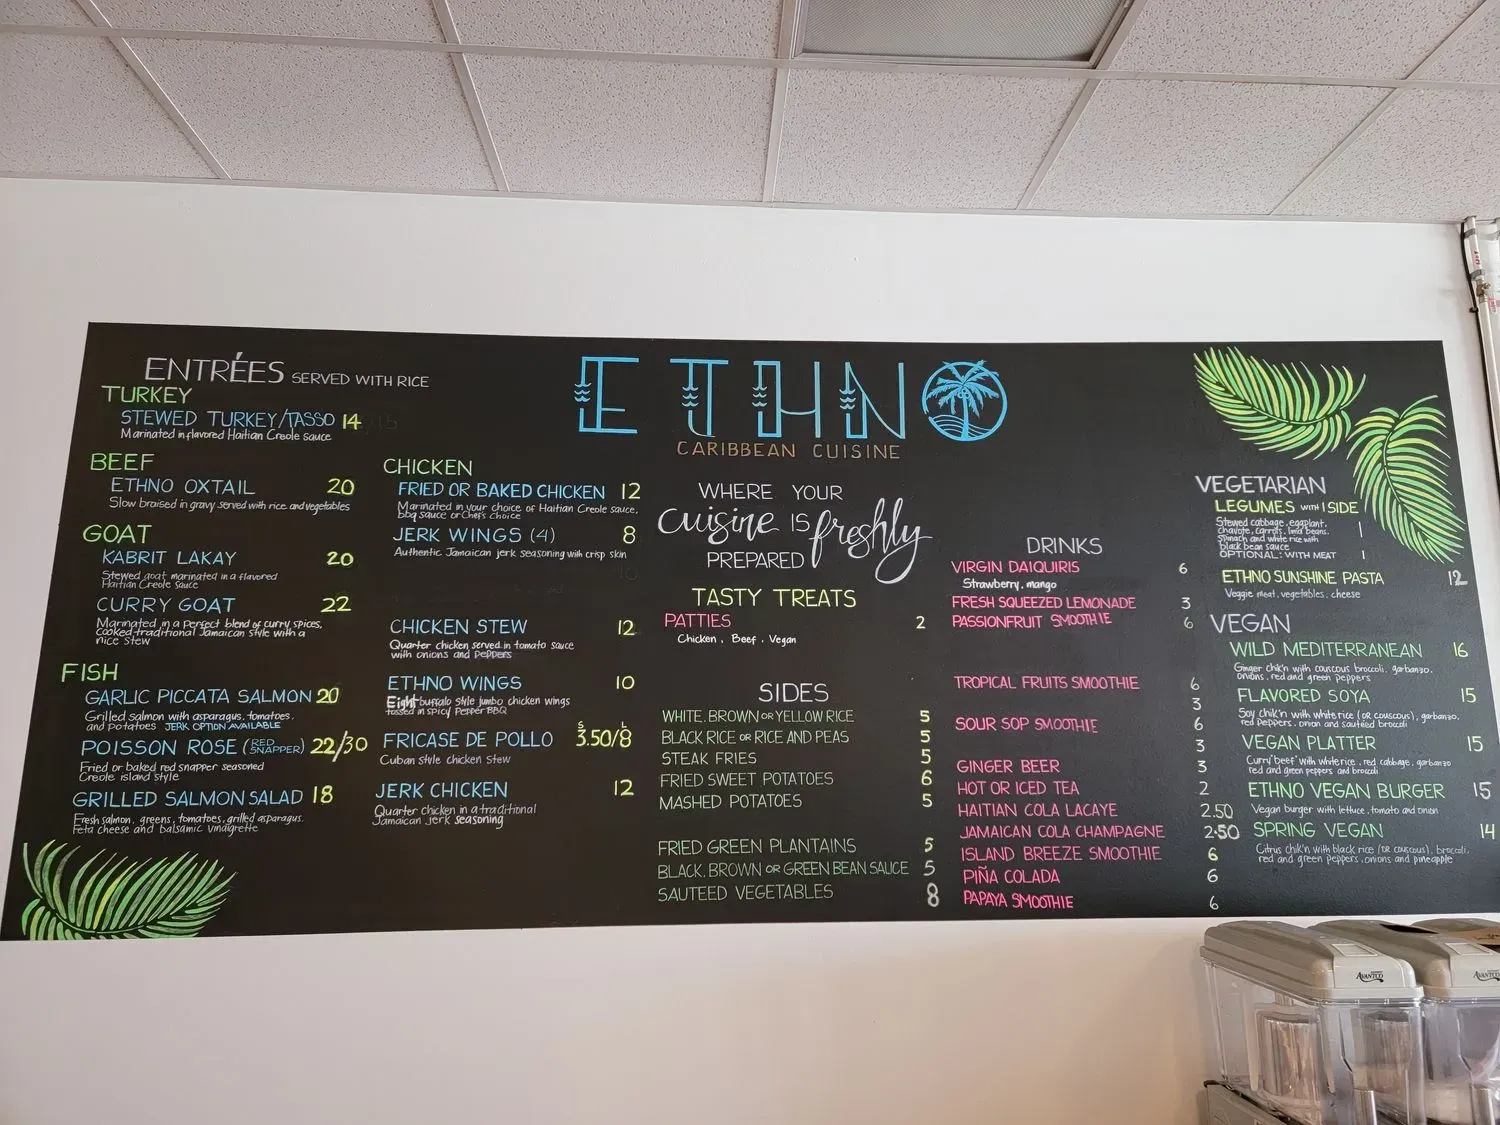 ENTRÉES SERVED WITH RICE
TURKEY
STEWED TURKEY/TASSO 14
Marinated in flavored Haitian Creole sauce
BEEF
ETHNO OXTAIL 20
Slow braised in gravy served with rice and vegetables
GOAT
KABRIT LAKAY 20
Stewed goat marinated in a flavored
Haitian Creole sauce
CURRY GOAT 22
Marinated in a perfect blend of curry spices,
cooked traditional Jamaican style with a
nice stew
FISH
GARLIC PICCATA SALMON 20
Grilled salmon with asparagus, tomatoes,
and potatoes JERK OPTION AVAILABLE
POISSON ROSE (RED SNAPPER) 22/30
Fried or baked red snapper seasoned
Creole island style
GRILLED SALMON SALAD 18
Fresh salmon, greens, tomatoes, grilled asparagus,
Feta cheese and balsamic vinaigrette
CHICKEN
FRIED OR BAKED CHICKEN 12
Marinated in your choice of Haitian Creole sauce,
bbq sauce or Chef's choice
JERK WINGS (4) 8
Authentic Jamaican jerk seasoning with crisp skin
CHICKEN STEW 12
Quarter chicken served in tomato sauce
with onions and peppers
ETHNO WINGS 10
Eight buffalo style jumbo chicken wings
tossed in spicy Pepper BBQ
S L
FRICASE DE POLLO 3.50/8
Cuban style chicken stew
JERK CHICKEN 12
Quarter chicken in a traditional
Jamaican Jerk seasoning
ETHNO
CARIBBEAN CUISINE
WHERE YOUR
cuisine IS freshly
PREPARED
TASTY TREATS
PATTIES 2
Chicken, Beef, Vegan
SIDES
WHITE, BROWN OR YELLOW RICE 5
BLACK RICE OR RICE AND PEAS 5
STEAK FRIES 5
FRIED SWEET POTATOES 6
MASHED POTATOES 5
FRIED GREEN PLANTAINS 5
BLACK, BROWN OR GREEN BEAN SAUCE 5
SAUTEED VEGETABLES 8
DRINKS
VIRGIN DAIQUIRIS 6
Strawberry, mango
FRESH SQUEEZED LEMONADE 3
PASSIONFRUIT SMOOTHIE 6
TROPICAL FRUITS SMOOTHIE 6
3
SOUR SOP SMOOTHIE 6
3
GINGER BEER 3
HOT OR ICED TEA 2
HAITIAN COLA LACAYE 2.50
JAMAICAN COLA CHAMPAGNE 2.50
ISLAND BREEZE SMOOTHIE 6
PIÑA COLADA 6
PAPAYA SMOOTHIE 6
VEGETARIAN
LEGUMES WITH 1 SIDE
Stewed cabbage, eggplant,
chayote, carrots, lima beans,
spinach and white rice with
black bean sauce
OPTIONAL: WITH MEAT
ETHNO SUNSHINE PASTA 12
Veggie meat, vegetables, cheese
VEGAN
WILD MEDITERRANEAN 16
Ginger chik'n with couscous broccoli, garbanzo,
onions, red and green peppers
FLAVORED SOYA 15
Soy chik'n with white rice (OR couscous), garbanzo,
red peppers, onion and sauteed broccoli
VEGAN PLATTER 15
Curry 'beef' with white rice, red cabbage, garbanzo
red and green peppers and broccoli
ETHNO VEGAN BURGER 15
Vegan burger with lettuce, tomato and onion
SPRING VEGAN 14
Citrus chik'n with black rice (OR couscous), broccoli,
red and green peppers, onions and pineapple
AVANTCO
AVANTCO